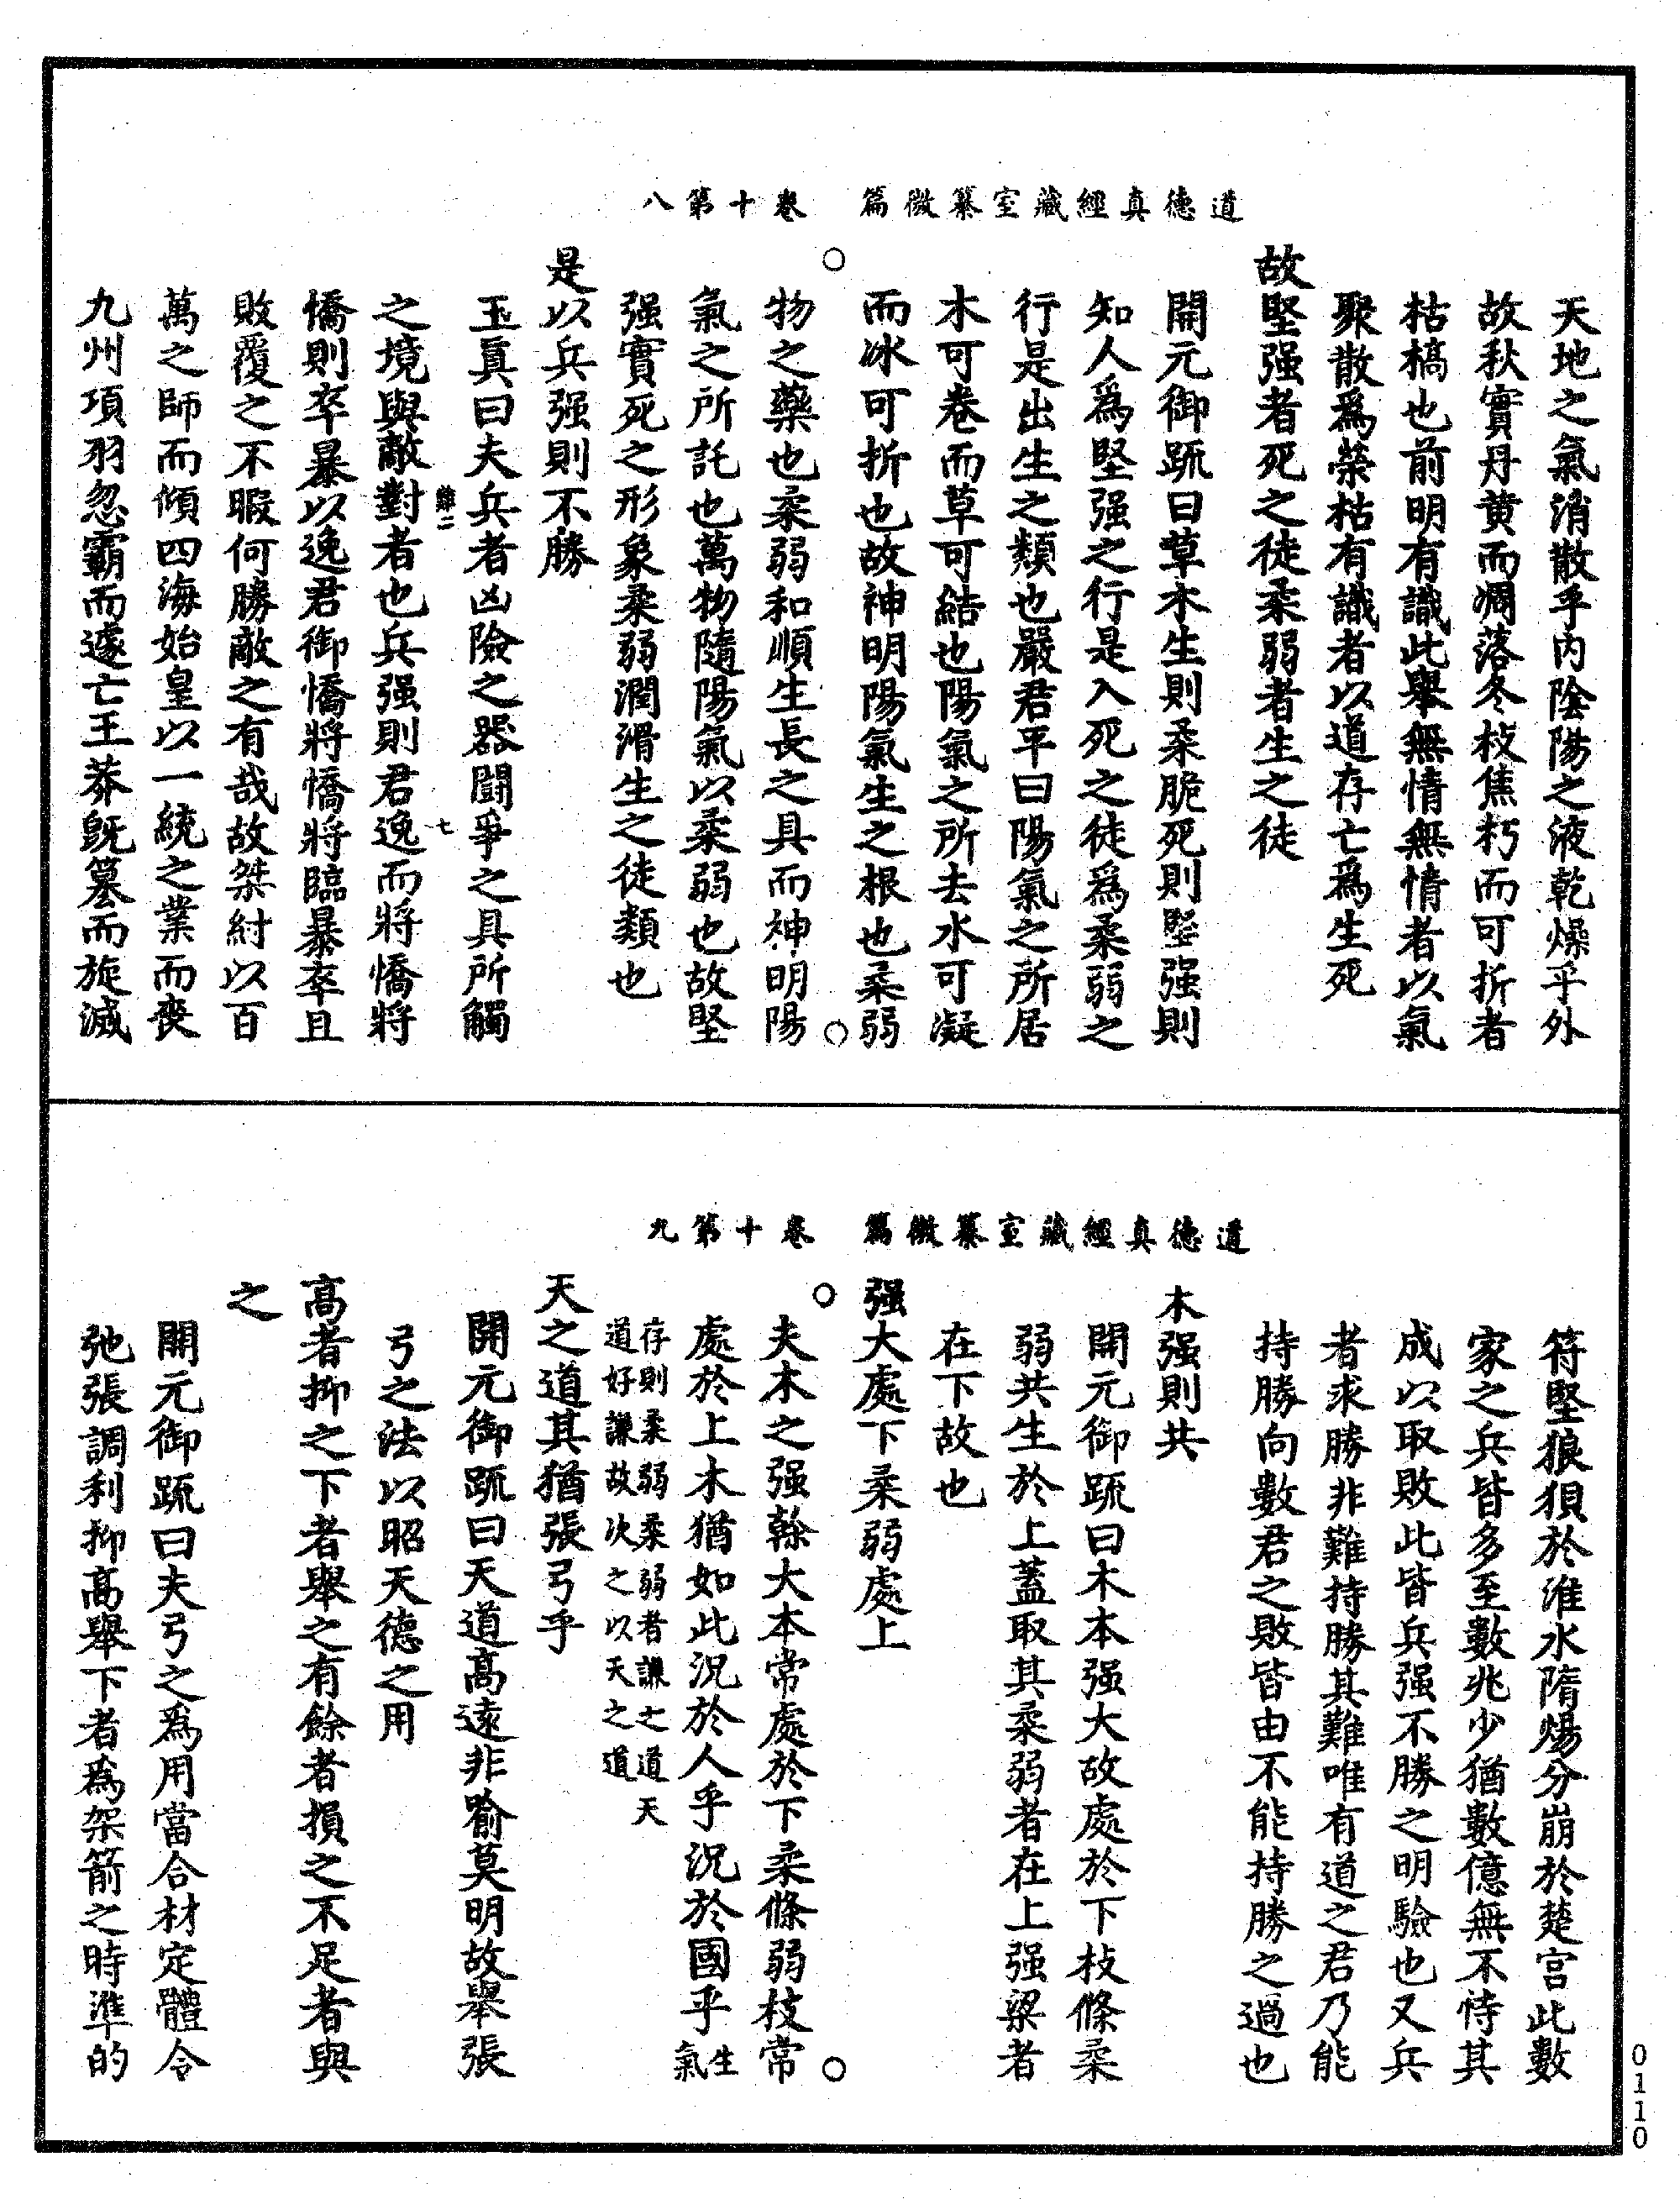 道德真經藏室纂微篇　卷十第八
天地之氣消散乎内陰陽之液乾燥乎外
故秋實丹黄而凋落冬枝焦朽而可折者
枯槁也前明有識此舉無情無情者以氣
聚散爲榮枯有識者以道存亡爲生死
故堅强者死之徒柔弱者生之徒
開元御䟽曰草木生則柔脆死則堅强則
知人爲堅强之行是入死之徒爲柔弱之
行是出生之類也嚴君平曰陽氣之所居
木可卷而草可結也陽氣之所去水可凝
而冰可折也故神明陽氣生之根也柔弱
○
○
物之藥也柔弱和順生長之具而神明陽
氣之所託也萬物隨陽氣以柔弱也故堅
强實死之形象柔弱潤滑生之徒類也
是以兵强則不勝
玉真曰夫兵者凶險之器鬭爭之具所觸
七
之境與敵對者也兵强則君逸而將憍將
憍則卒暴以逸君御憍將憍將臨暴卒且
敗覆之不暇何勝敵之有哉故桀紂以百
萬之師而傾四海始皇以一統之業而喪
九州項羽忽霸而遽亡王莽旣篡而旋滅
道德真經藏室纂微篇　卷十第九
符堅狼狽於淮水隋煬分崩於楚宫此數
家之兵皆多至數兆少猶數億無不恃其
成以取敗此皆兵强不勝之明驗也又兵
者求勝非難持勝其難唯有道之君乃能
持勝向數君之敗皆由不能持勝之過也
木强則共
開元御䟽曰木本强大故處於下枝條柔
弱共生於上蓋取其柔弱者在上强梁者
在下故也
强大處下柔弱處上
○
○
夫木之强榦大本常處於下柔條弱枝常
處於上木猶如此況於人乎況於國乎生氣
存則柔弱柔弱者謙之道天
道好謙故次之以天之道
天之道其猶張弓乎
開元御䟽曰天道高遠非喻莫明故舉張
弓之法以昭天德之用
高者抑之下者舉之有餘者損之不足者與
之
開元御䟽曰夫弓之爲用當合材定體令
弛張調利抑高舉下者爲架箭之時準的
0110